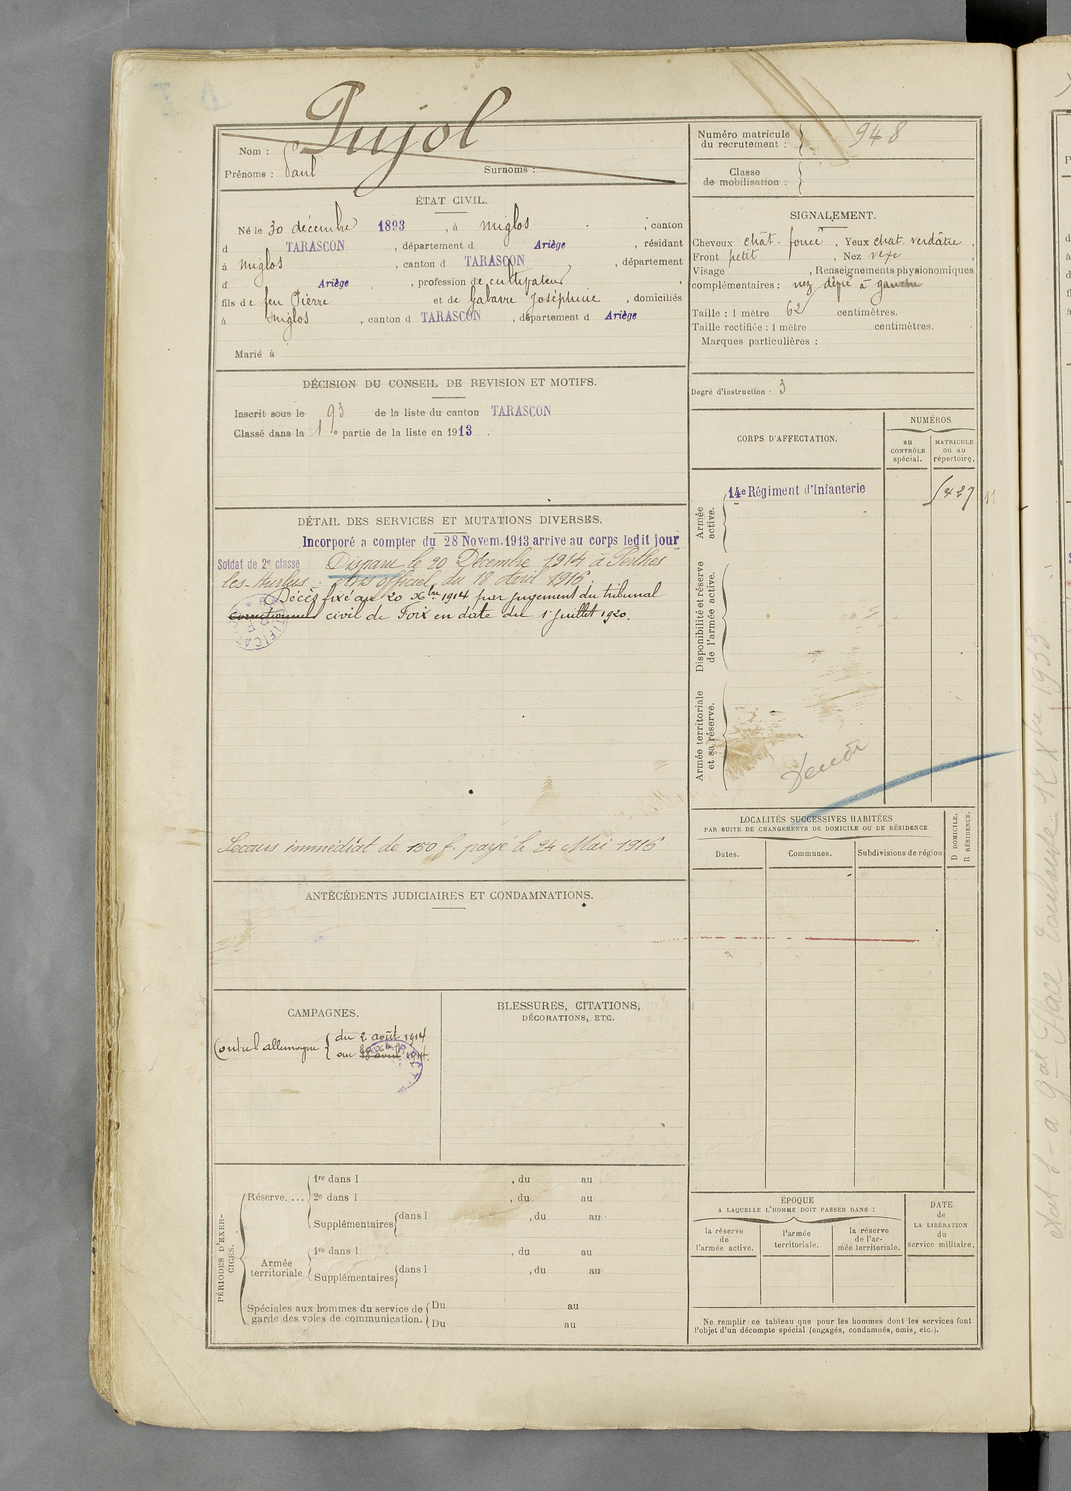 Pujol
Nom :
Prénoms : Paul
Surnoms :
ÉTAT CIVIL.
Né le 30 décembre 1893, à Miglos, canton
d TARASCON, département d Ariège, résidant
à Miglos, canton d TARASCON, département
d Ariège, profession de cultivateur,
fils de feu Pierre et de Galaure Joséphine, domiciliés
à Miglos, canton d TARASCON, département d Ariège
Marié à
DÉCISION DU CONSEIL DE REVISION ET MOTIFS.
Inscrit sous le 93 de la liste du canton TARASCON
Classé dans la 1re partie de la liste en 1913.
DÉTAIL DES SERVICES ET MUTATIONS DIVERSES.
Incorporé a compter du 28 Novem. 1913 arrive au corps ledit jour
Soldat de 2e classe Disparu le 20 Décembre 1914 à Perthes
les-Hurlus. Avis officiel du 18 avril 1915.
Décès fixé au 20 Xbre 1914 par jugement du tribunal
correctionnel civil de Foix en date du 1er juillet 1920.
Secours immédiat de 150 f. payé le 24 Mai 1915
ANTÉCÉDENTS JUDICIAIRES ET CONDAMNATIONS.
CAMPAGNES.
Contre l'allemagne du 2 août 1914
au 1914.
BLESSURES, CITATIONS,
DÉCORATIONS, ETC.
PÉRIODES D'EXER-
CICES.
Réserve....
1re dans l , du au
2e dans l , du au
Supplémentaires dans l , du au
Armée
territoriale
1re dans l , du au
Supplémentaires dans l , du au
Spéciales aux hommes du service de
garde des voies de communication.
Du au
Du au
Numéro matricule
du recrutement : 948
Classe
de mobilisation :
SIGNALEMENT.
Cheveux chât. foncé, Yeux chat. verdâtre,
Front petit, Nez vexe,
Visage , Renseignements physionomiques
complémentaires : nez dépié à gauche
Taille : 1 mètre 62 centimètres.
Taille rectifiée : 1 mètre centimètres.
Marques particulières :
Degré d'instruction : 3
CORPS D'AFFECTATION.
NUMÉROS
AU
CONTRÔLE
spécial.
MATRICULE
ou au
répertoire.
Armée
active.
14e Régiment d'Infanterie
Disponibilité et réserve
de l'armée active.
Armée territoriale
et sa réserve.
LOCALITÉS SUCCESSIVES HABITÉES
PAR SUITE DE CHANGEMENTS DE DOMICILE OU DE RÉSIDENCE
Dates.
Communes.
Subdivisions de région
D DOMICILE.
R RÉSIDENCE.
ÉPOQUE
A LAQUELLE L'HOMME DOIT PASSER DANS :
la réserve
de
l'armée active.
l'armée
territoriale.
la réserve
de l'ar-
mée territoriale.
DATE
de
LA LIBÉRATION
du
service militaire.
Ne remplir ce tableau que pour les hommes dont les services font
l'objet d'un décompte spécial (engagés, condamnés, omis, etc.).